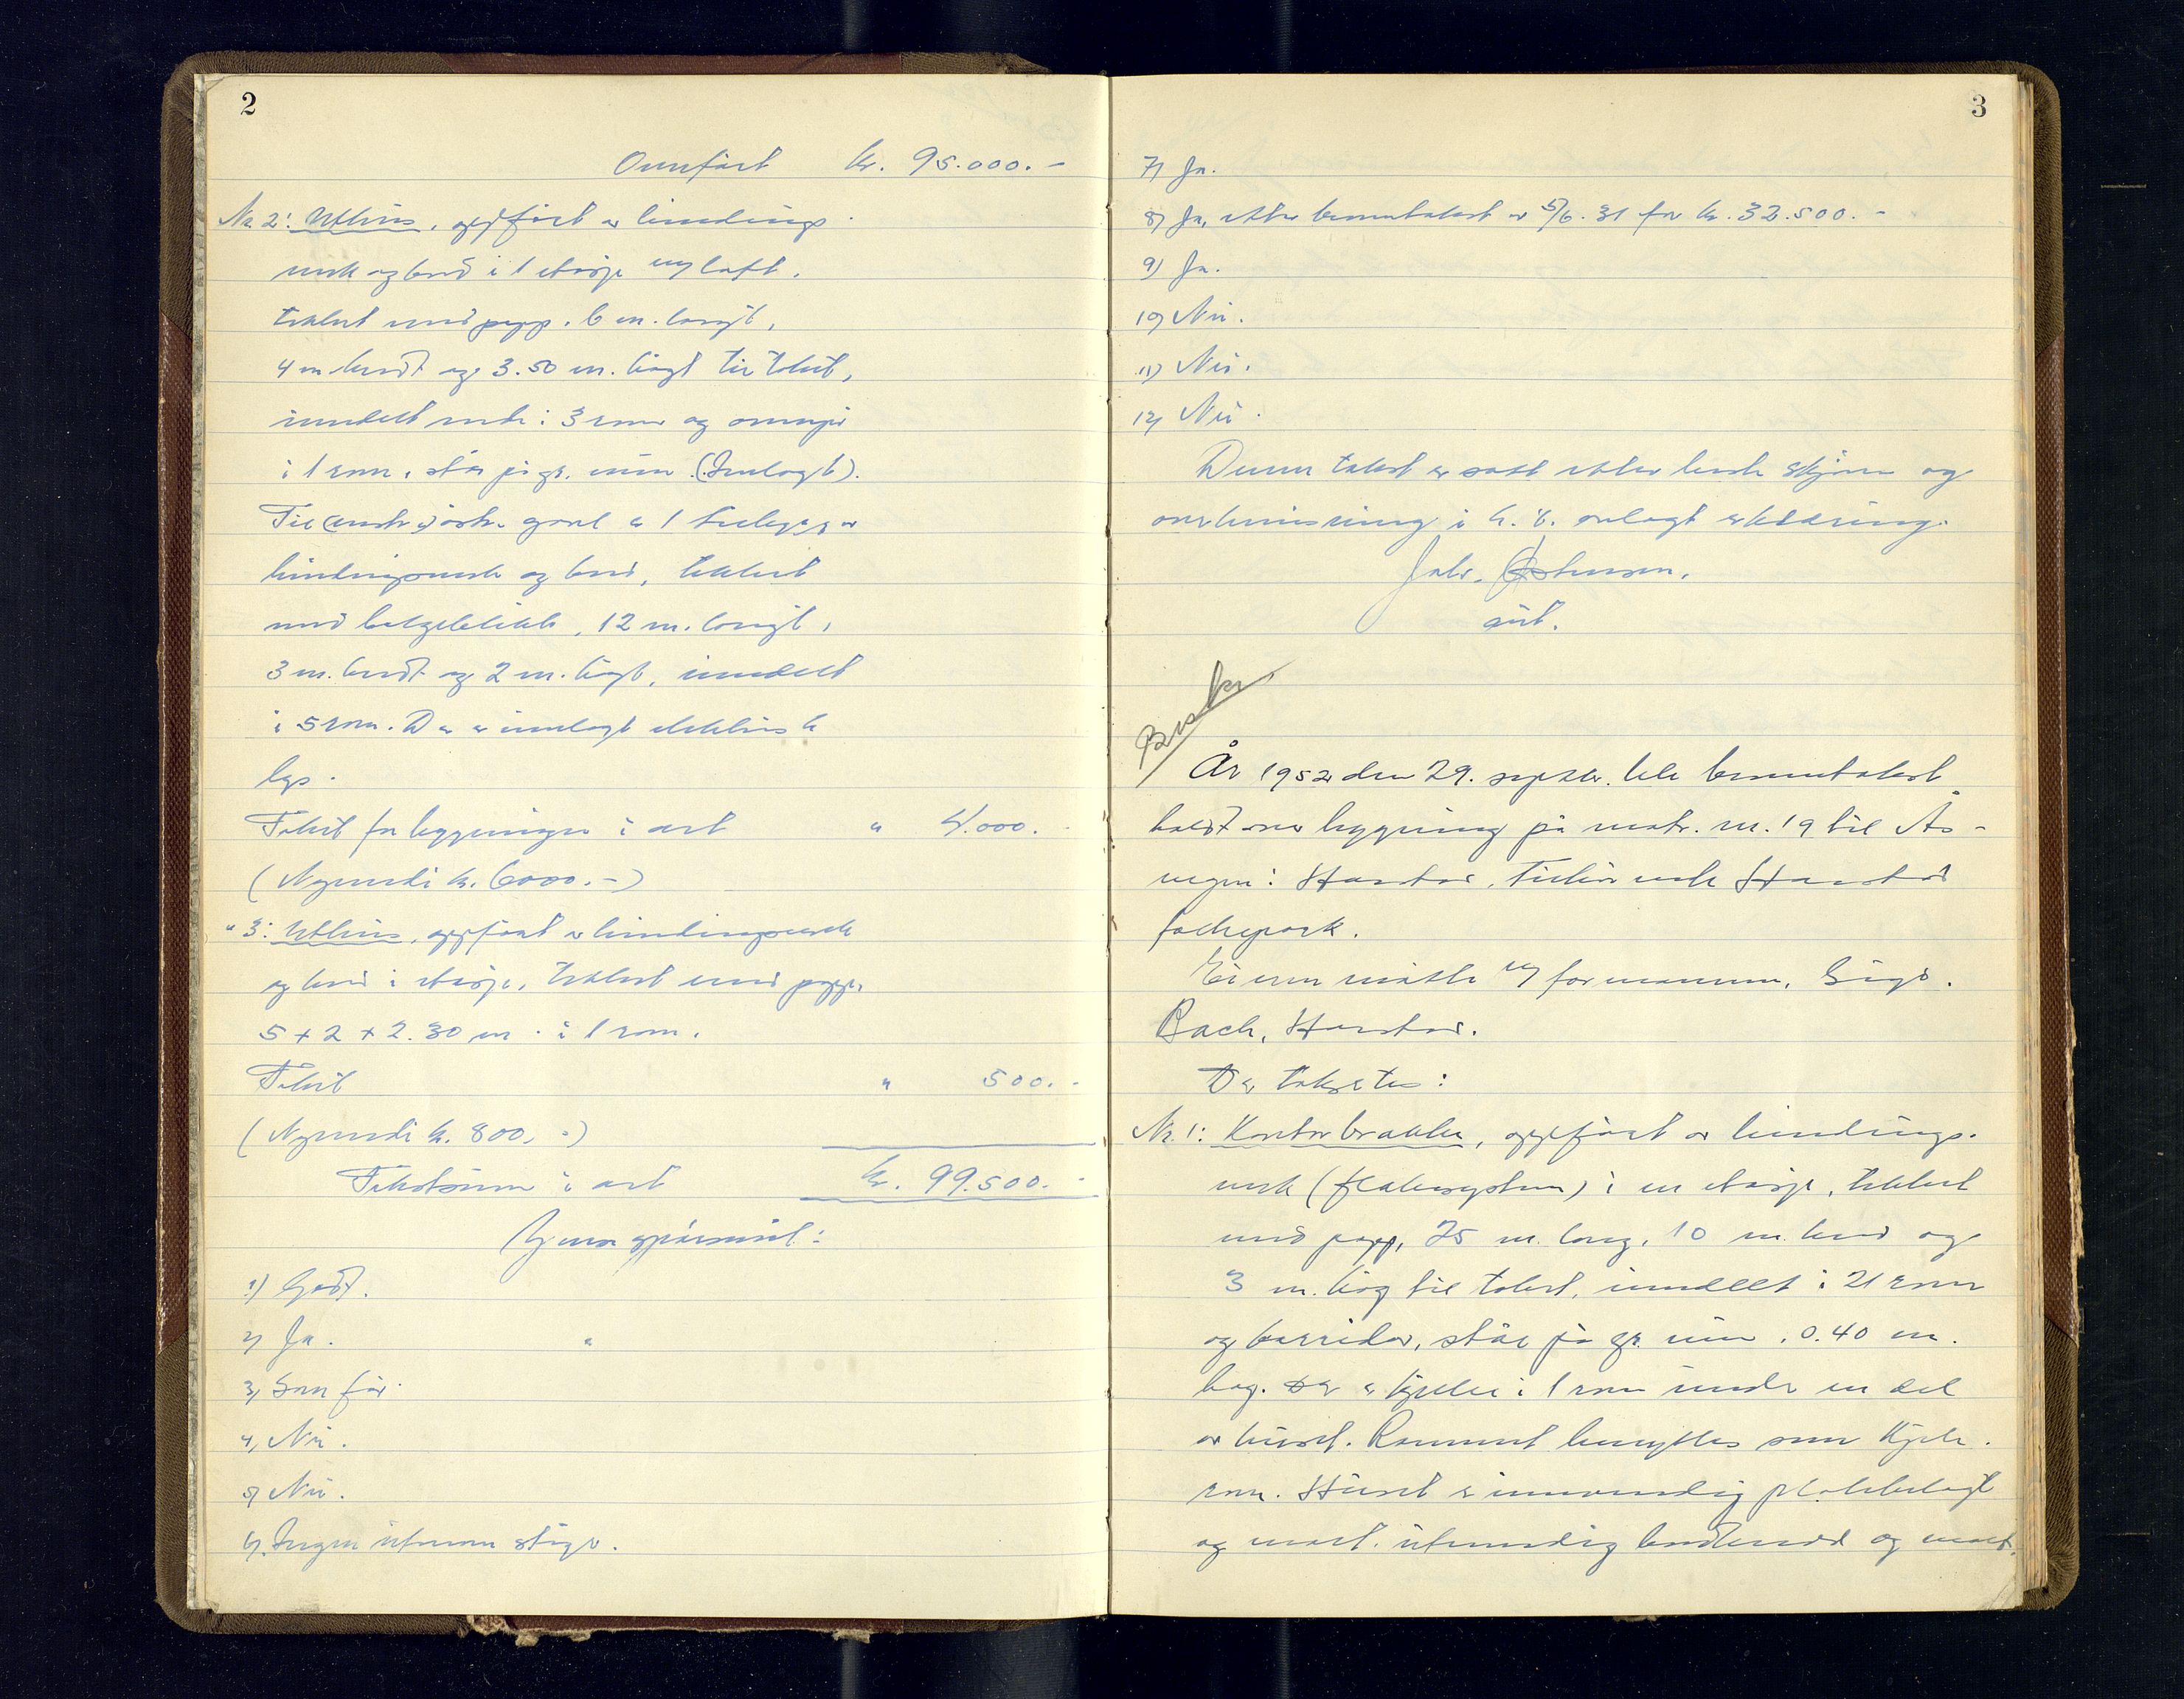 2
Overført kr. 95.000.-
Nr. 2: Uthus, oppført av bindings-
verk og bord i 1 etasje m/ loft,
tekket med papp. 6 m. langt,
4 m bredt og 3.50 m. høgt til taket,
inndelt nede i 3 rom og oventil
i 1 rom, står på gr. mur (Innlagt).
Til østre gavl er 1 tilbygg av
bindingsverk og bord, tekket
med bølgeblikk, 12 m. langt,
3 m. bredt og 2 m. høgt, inndelt
i 5 rom. Der er innlagt elektrisk
lys.
Takst for bygningen i alt " 4.000.-
(Nyverdi kr. 6000.-)
" 3: Uthus, oppført av bindingsverk
og bord i etasje, tekket med papp,
5 + 2 + 2.30 m. i 1 rom.
Takst " 500.-
(Nyverdi kr. 800.-)
Takstsum i alt kr. 99.500.-
Gjennemspørsmål:
1) Godt.
2) Ja.
3) Som før.
4) Nei.
5) Nei.
6) Ingen utenom stige.
3
7) Ja.
8) Ja, etter branntakst av 5/6.31 for kr. 32.500.-
9) Ja.
10) Nei.
11) Nei.
12) Nei.
Denne takst er satt etter beste skjønn og
overbevisning i h. t. avlagt erklæring.
Østensen.
År 1952 den 29. septbr. ble branntakst
holdt over bygning på matr. nr. 19 til Ås-
vegen i Harstad, tilhørende Harstad
folkepark.
Eieren møtte v/ formannen, Sigv.
Bach, Harstad.
Der taksertes:
Nr. 1: Kontorbrakke, oppført av bindings-
verk (flakesystem) i en etasje, tekket
med papp, 25 m. lang, 10 m. bred og
3 m. høg til taket, inndelt i 21 rom
og korridor, står på gr. mur, 0.40 m.
høg. Der er kjeller i 1 rom under en del
av huset. Rommet benyttes som kjele-
rom. Huset er innvendig platebelagt
og malt, utvendig bordkledd og malt.